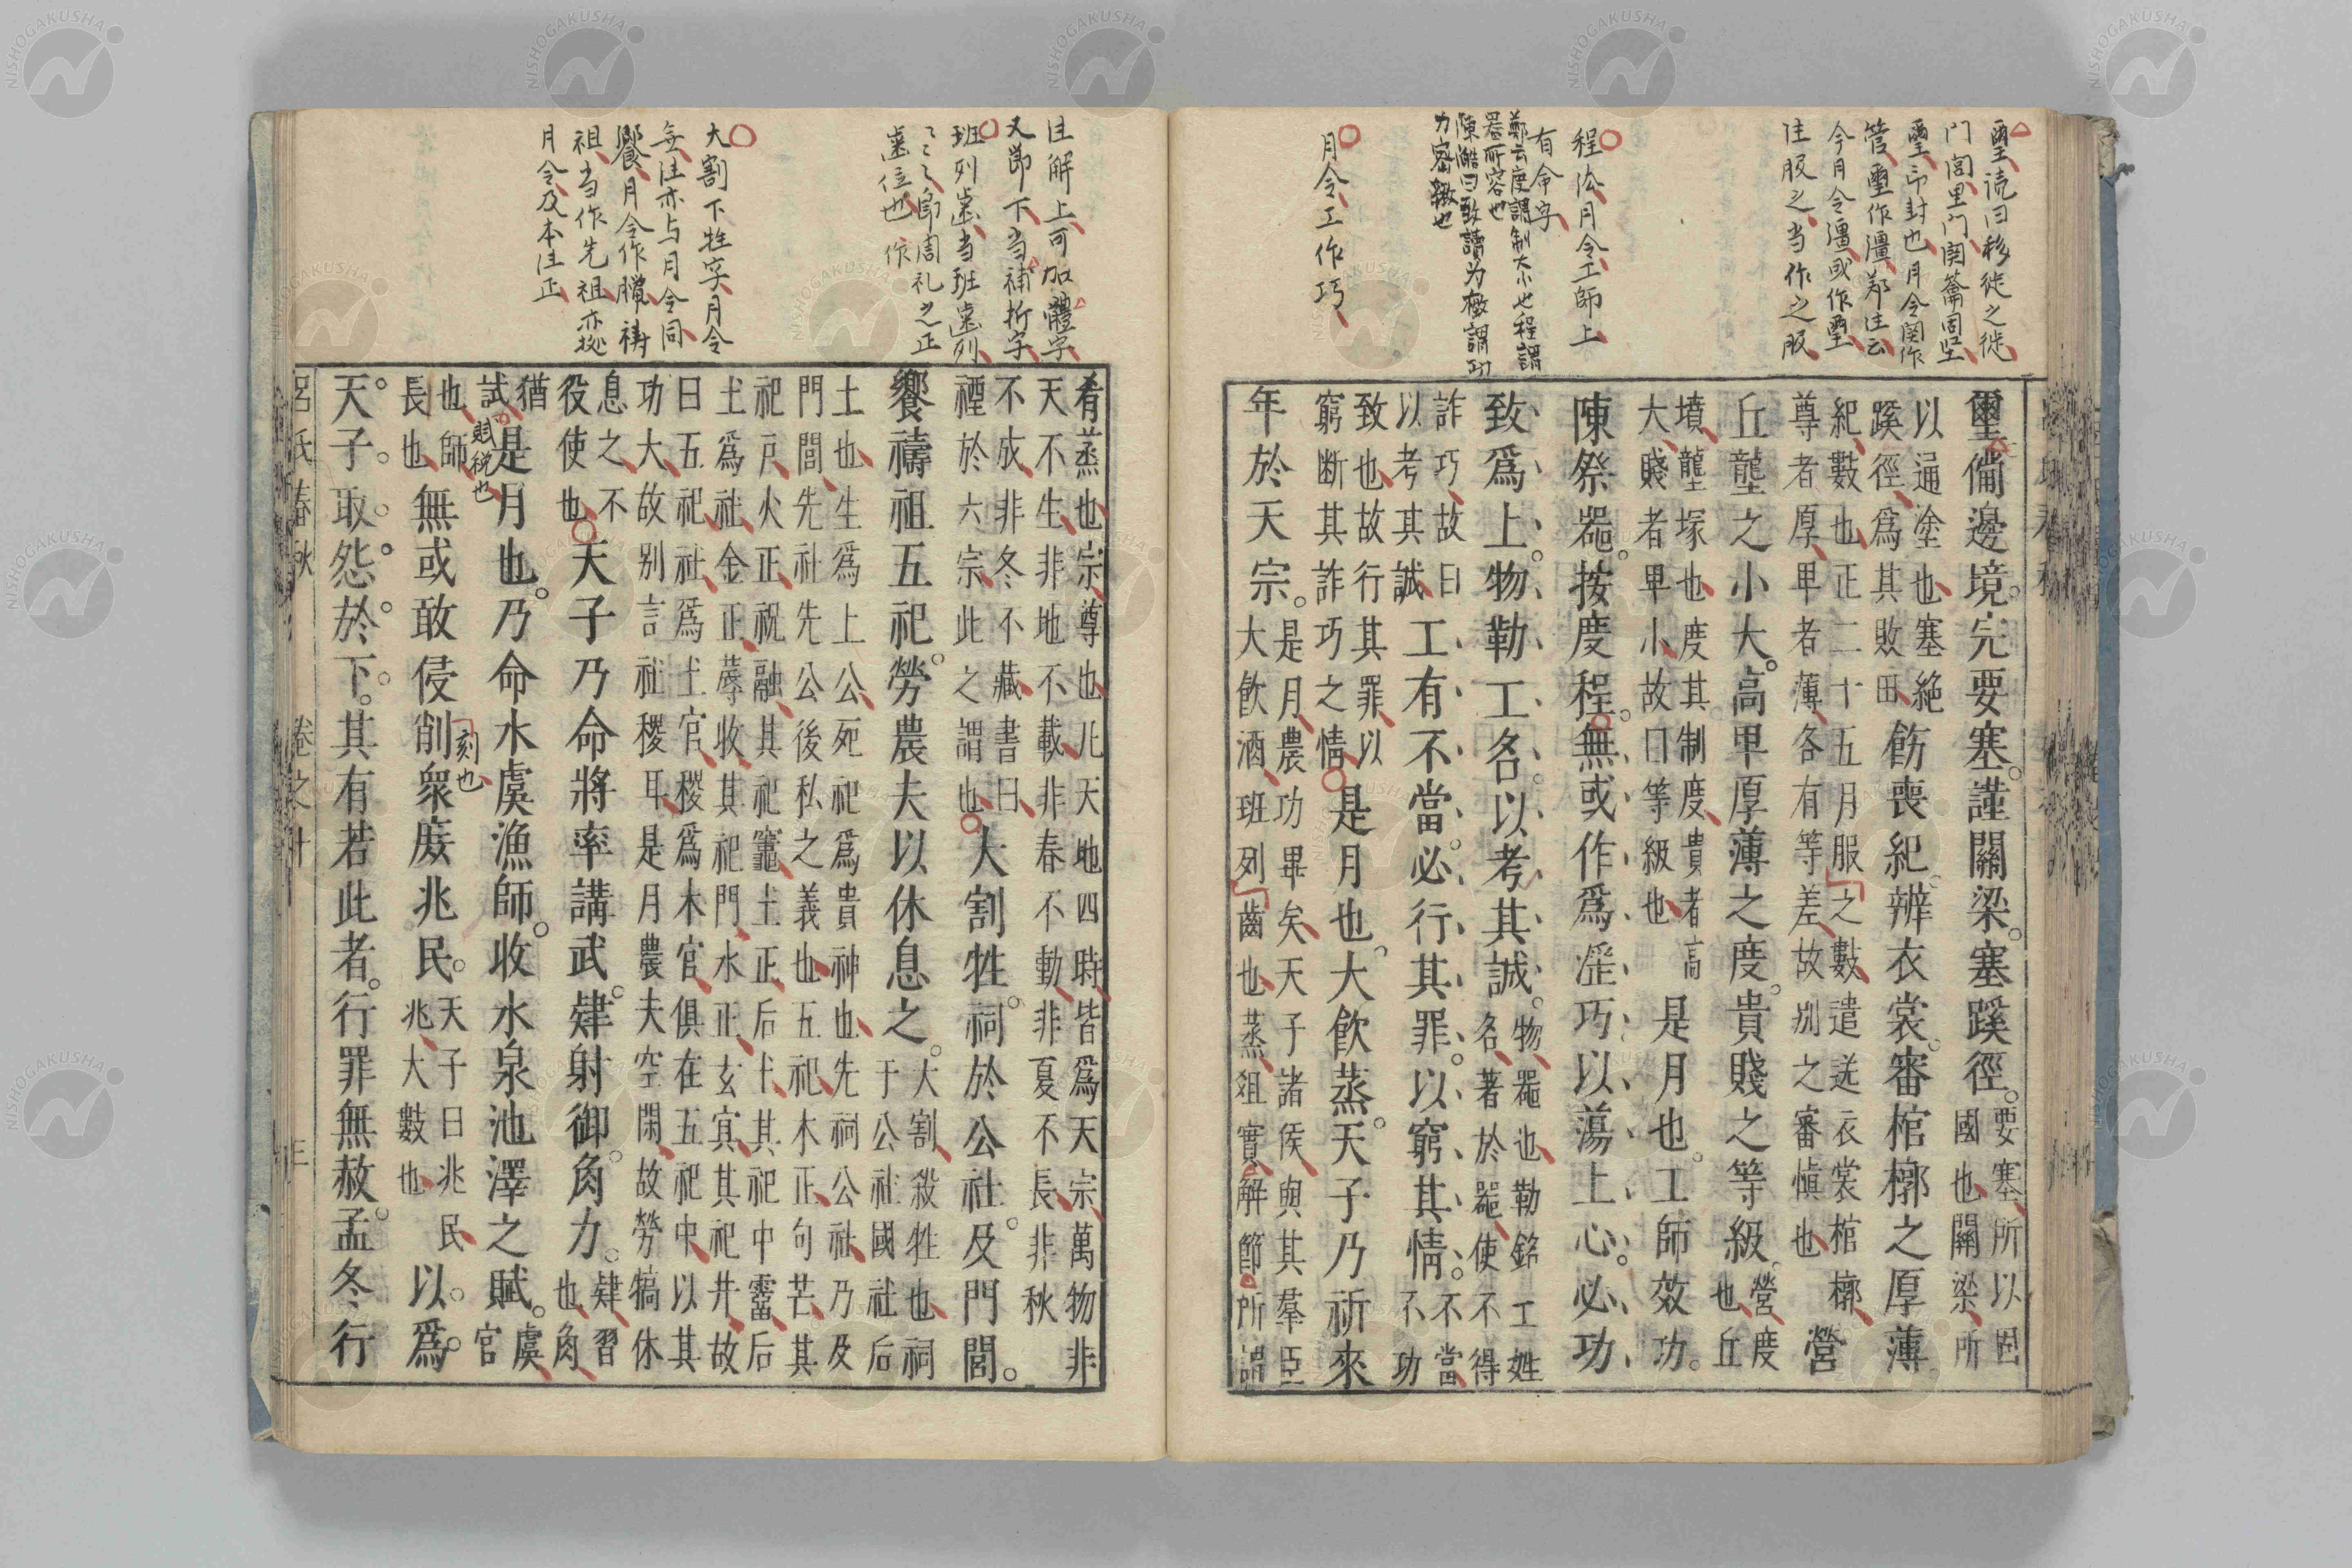 璽読曰移徙之徙
門閭里門関籥固坚
璽印封也月令関作
管璽作彊鄭注云
今月令彊或作璽
注服之当作之服
程法月令工師上
有命字
鄭云度謂制大小也程謂
器所容也
陳澔曰致讀为緻謂功
力密緻也
月令工作巧
璽備邊境完要塞謹關梁塞蹊徑
要塞所以固
國也關梁所
以通塗也塞絶
蹊徑爲其敗田
飭喪紀辨衣裳審棺槨之厚薄
紀數也正二十五月服之數遣送衣裳棺槨
尊者厚卑者薄各有等差故别之審愼也
營
丘壟之小大高卑厚薄之度貴賤之等級
營度
也丘
墳壟塚也度其制度貴者高
大賤者卑小故曰等級也
是月也工師效功
陳祭器按度程無或作爲淫巧以蕩上心必功
致爲上物勒工名以考其誠
物器也勒銘工姓
名著於器使不得
詐巧故曰
以考其誠
工有不當必行其罪以窮其情
不當
不功
致也故行其罪以
窮断其詐巧之情
是月也大飲蒸天子乃祈來
年於天宗
是月農功畢矣天子諸侯與其羣臣
大飲酒班列齒也蒸俎實解節所謂
注解上可加體字
又節下当補折字
班列齒当班齒列
〻〻〻即周礼之正
齒位也作
大割下牲字月令
無注亦与月令同
饗月令作臘禱
祖当作先祖亦㨿
月令及本注正
肴蒸也宗尊也凡天地四時皆爲天宗萬物非
天不生非地不載非春不動非夏不長非秋
不成非冬不藏書曰
禋於六宗此之謂也
大割牲祠於公社及門閭
饗禱祖五祀勞農夫以休息之
大割殺牲也祠
于公社國社后
土也生爲上公死祀爲貴神也先祠公社乃及
門閭先社先公後私之義也五祀木正句芒其
祀戸火正祝融其祀竈土正后土其祀中霤后
土爲社金正蓐收其祀門水正玄冥其祀井故
曰五祀社爲土官稷爲木官俱在五祀中以其
功大故别言社稷耳是月農夫空閑故勞犒休
息之不
役使也
天子乃命將率講武肄射御角力
肄習
也角
猶
試
賦税也
是月也乃命水虞漁師收水泉池澤之賦
虞
官
也師
長也
無或敢侵削衆庶兆民
刻也
天子曰兆民
兆大數也
以爲
天子取怨於下其有若此者行罪無赦孟冬行
呂氏春秋 卷之十